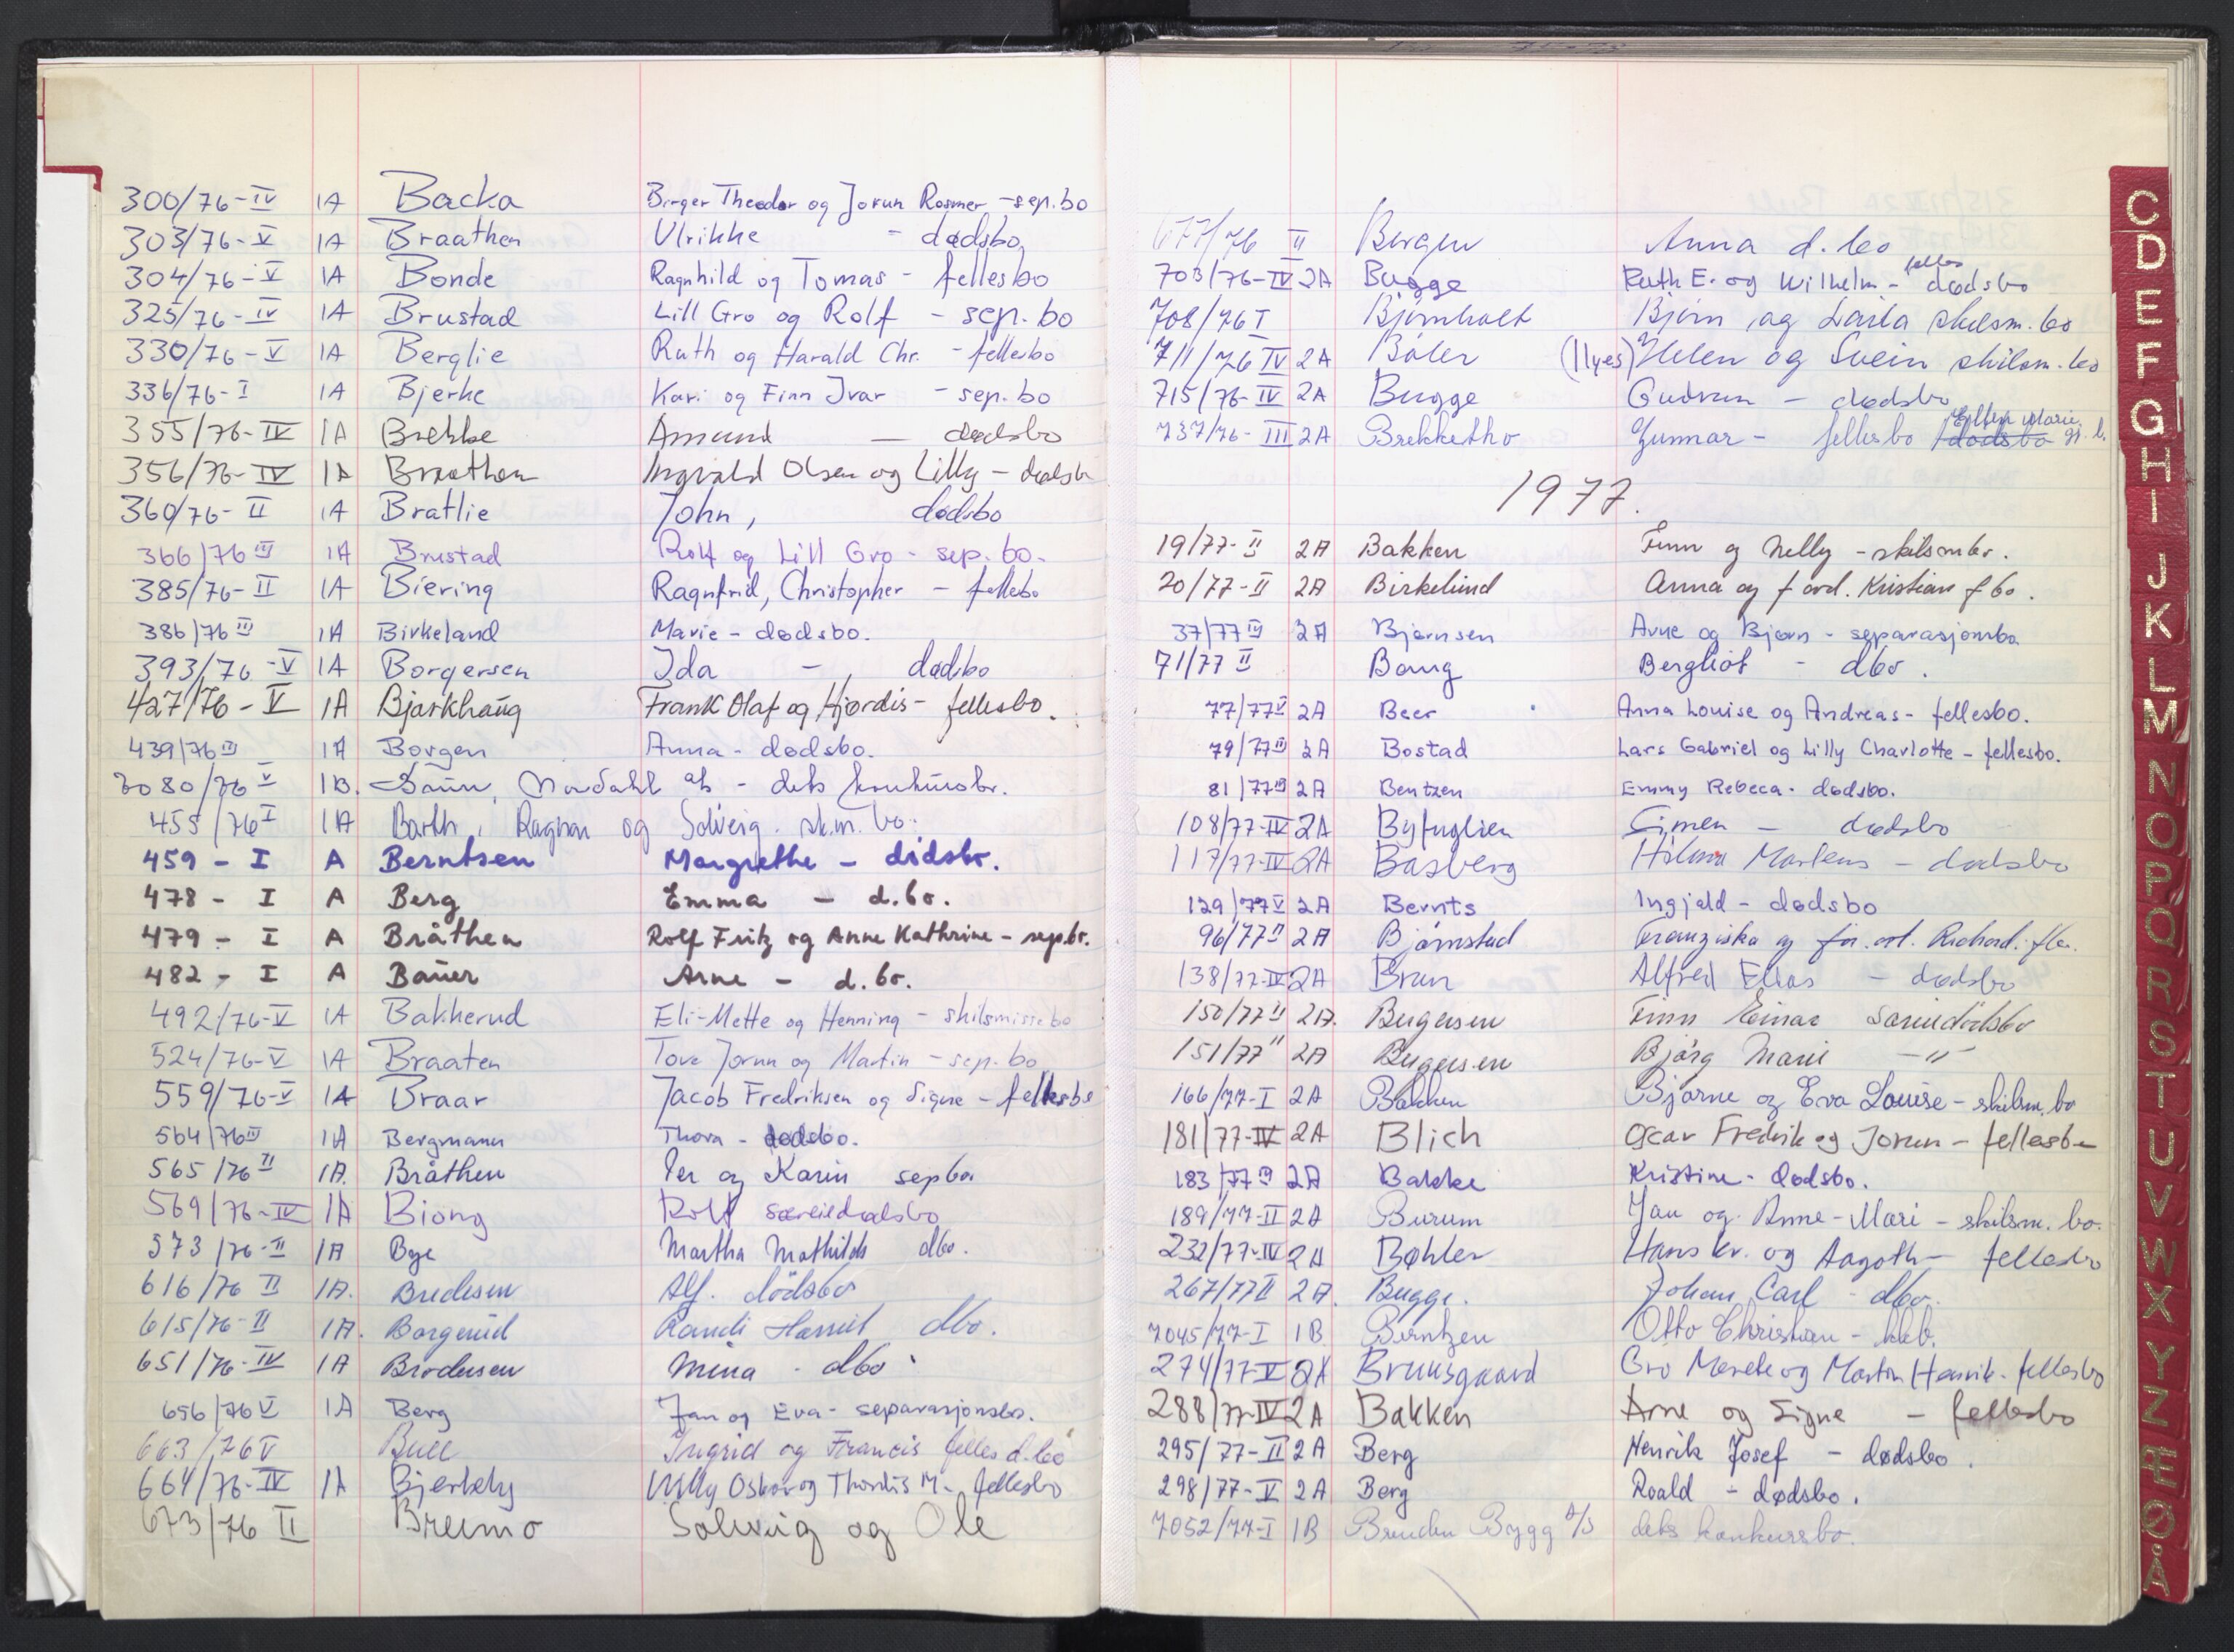 300/76-IV 1A Backa Birger Theodor og Jorun Rosmer - sep.bo
303/76-V 1A Braathen Ulrikke - dødsbo
304/76-V 1A Bonde Ragnhild og Tomas - fellesbo
325/76-IV 1A Brustad Lill Gro og Rolf - sep. bo
330/76-V 1A Berglie Ruth og Harald Chr. - fellesbo
336/76-I 1A Bjerke Kari og Finn Ivar - sep. bo
355/76-IV 1A Brekke Amund - dødsbo
356/76-IV 1A Braathen Ingvald Olsen og Lilly - dødsb
360/76-II 1A Bratlie John, dødsbo
366/76 III 1A Brustad Rolf og Lill Gro - sep. bo.
385/76-II 1A Biering Ragnfrid, Christopher - fellesbo
386/76 III 1A Birkeland Marie - dødsbo.
393/76-V 1A Borgersen Ida - dødsbo
427/76-V 1A Bjørkhaug Frank Olaf og Hjørdis - fellesbo.
439/76 III 1A Borgen Anna - dødsbo.
7080/76 V 1B. Nordahl a/s - dets konkursbo.
455/76 I 1A Barth, Ragnar og Solveig. sk.m. bo.
459 - I A Berntsen Margrethe - dødsbo.
478 - I A Berg Emma - d.bo.
479 - I A Bråthen Rolf Fritz og Anne Kathrine - sep.bo.
482 - I A Bauer Arne - d.bo.
492/76-V 1A Bakkerud Eli-Mette og Henning - skilsmissebo
524/76-V 1A Braaten Tove Jorun og Martin - sep. bo
559/76-V 1A Braar Jacob Fredriksen og Signe - fellesbo
564/76 III 1A Bergmann Thora - dødsbo.
565/76 II 1A. Bråthen Per og Karin sepbo
569/76-IV 1A Biong Rolf særeiedødsbo
573/76-II 1A Bye Martha Mathilde dbo.
616/76 II 1A. Bredesen Alf. dødsbo
615/76-II 1A. Borgerud Randi Harriet dbo.
651/76-IV 1A Brodersen Mina - dbo
656/76 V 1A Berg Jan og Eva - separasjonsbo.
663/76 V Bull Ingrid og Francis felles d.bo
664/76-IV 1A Bjerkely Willy Oskar og Thordis M. - fellesbo
673/76 II Bremo Solveig og Ole
677/76 II Borgen Anna d.bo
703/76-IV 2A Bugge Ruth E. og Wilhelm - felles dødsbo
708/76 I Bjørnholt Bjørn og Laila skilsm. bo
711/76 IV 2A Bøler (Ilyes) Helen og Svein skilsm. bo
715/76-IV 2A Bugge Gudrun - dødsbo
737/76-III 2A Brekketho Gunnar - fellesbo dødsbo Ellen Marie
1977.
19/77-II 2A Bakken Finn og Nelly - skilsmbo.
20/77-II 2A Birkelund Anna og f avd. Kristian fbo.
37/77 III 2A Bjørnsen Arne og Bjørn - separasjonsbo
71/77 II Baug Bergliot - dbo.
77/77 V 2A Beer Anna Louise og Andreas - fellesbo.
79/77 III 2A Bostad Lars Gabriel og Lilly Charlotte - fellesbo.
81/77 III 2A Bentzen Emmy Rebeca - dødsbo.
108/77-IV 2A Byfuglien Simen - dødsbo
117/77-IV 2A Basberg Hilma Martens - dødsbo
129/77 V 2A Bernts Ingjald - dødsbo
96/77 II 2A Bjørnstad Franziska og Richard. fbo.
138/77-IV 2A Brun Alfred Elias - dødsbo
150/77 II 2A. Birgersen Finn Einar særeiedødsbo
151/77 II 2A Birgersen Bjørg Marie -"-
166/77-I 2A Bakken Bjarne og Eva Louise - skilsm. bo
181/77-IV 2A Blich Oscar Fredrik og Jorun - fellesbo
183/77 III 2A Bakke Kristine - dødsbo.
189/77-II 2A Burum Jan og Anne-Mari - skilsm. bo.
232/77-IV 2A Bøhler Hans Kr. og Aagoth - fellesbo
267/77 II 2A. Bugge. Johan Carl - dbo.
7045/77-I 1B Berntzen Otto Christian - kkb.
274/77-V 2A Bruusgaard Gro Merete og Martin Henrik - fellesbo
288/77-IV 2A Bakken Arne og Signe - fellesbo
295/77-II 2A Berg Henrik Josef - dødsbo.
298/77-V 2A Berg Roald - dødsbo.
7052/77-I 1B Bygg A/S dets konkursbo.
C
D
E
F
G
H
I
J
K
L
M
N
O
P
Q
R
S
T
U
V
W
X
Y
Z
Æ
Ø
Å